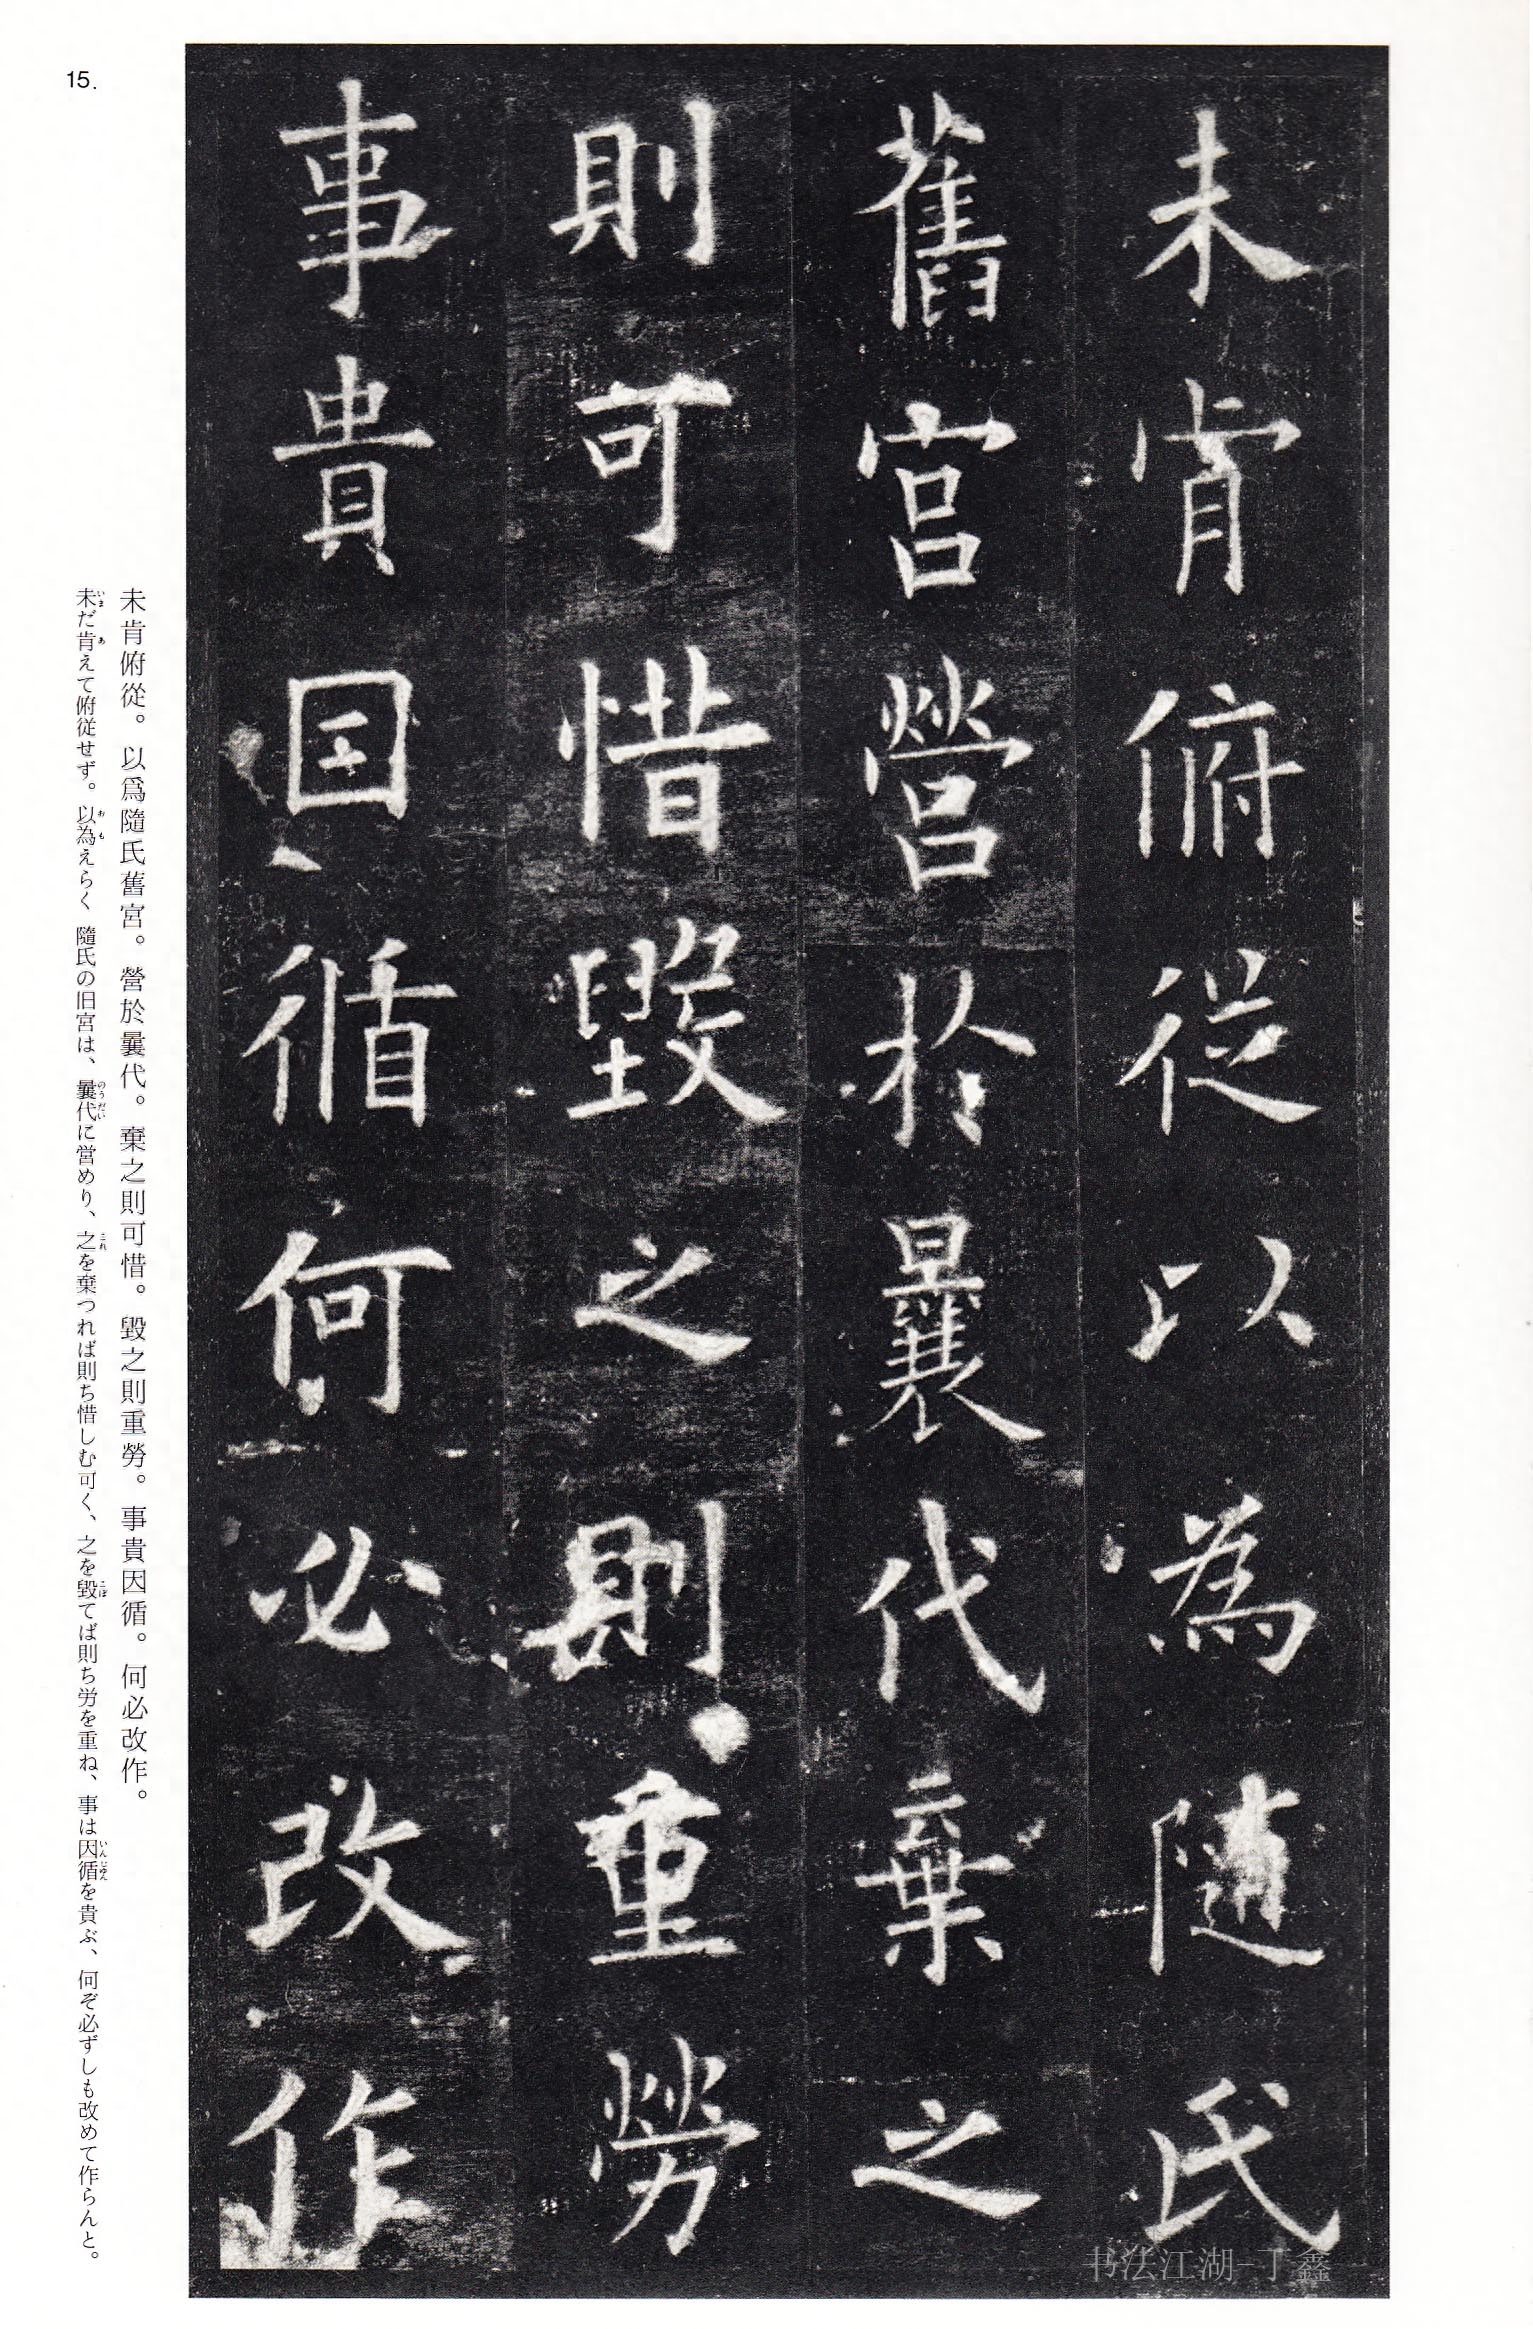 15.
未肯俯從以為隨氏
舊宮營於曩代棄之
則可惜毀之則重勞
事貴因循何必改作
未肯俯從。以爲隨氏舊宮。營於曩代。棄之則可惜。毀之則重勞。事貴因循。何必改作。
未だ肯えて俯従せず。以為えらく 隨氏の旧宮は、曩代に営めり、之を棄つれば則ち惜しむ可く、之を毀てば則ち労を重ね、事は因循を貴ぶ、何ぞ必ずしも改めて作らんと。
书法江湖-丁鑫